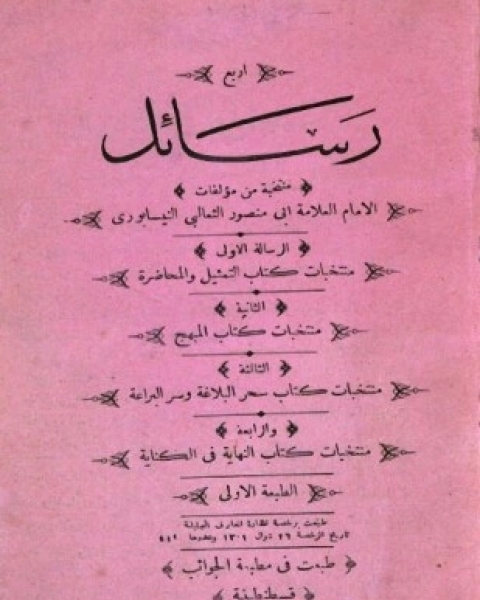 اربع
رسائل
منتخبة من مؤلفات
الامام العلامة ابى منصور الثعالبى النيسابورى
الرسالة الاولى
منتخبات كتاب التمثيل والمحاضرة
الثانية
منتخبات كتاب المبهج
الثالثة
منتخبات كتاب سحر البلاغة وسر البراعة
والرابعة
منتخبات كتاب النهاية فى الكناية
الطبعة الاولى
طبعت برخصة نظارة المعارف الجليلة
تاريخ الرخصة ٢٦ شوال ١٣٠١ وعددها ٤٤٢
طبعت فى مطبعة الجوائب
قسطنطينية